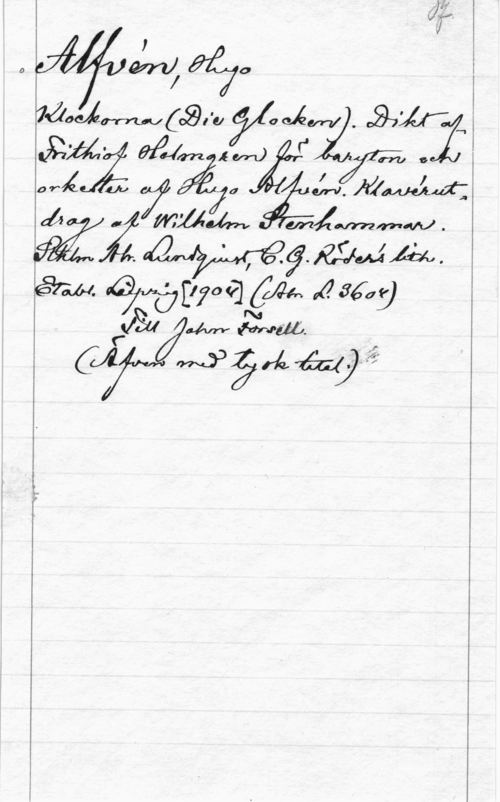 Alfvén, Hugo
Klockorna (Die Glocken). Dikt af
Frithiof Holmgren för baryton och
orkester af Hugo Alfvén. Klavérut-
drag af Wilhelm Stenhammar.
Sthlm Ab. Lundquist, C. G. Röder's lith.
Etabl. Leipzig [1904] (Abr. L. 3604)
Till John Forsell.
(Äfven med tysk titel.)